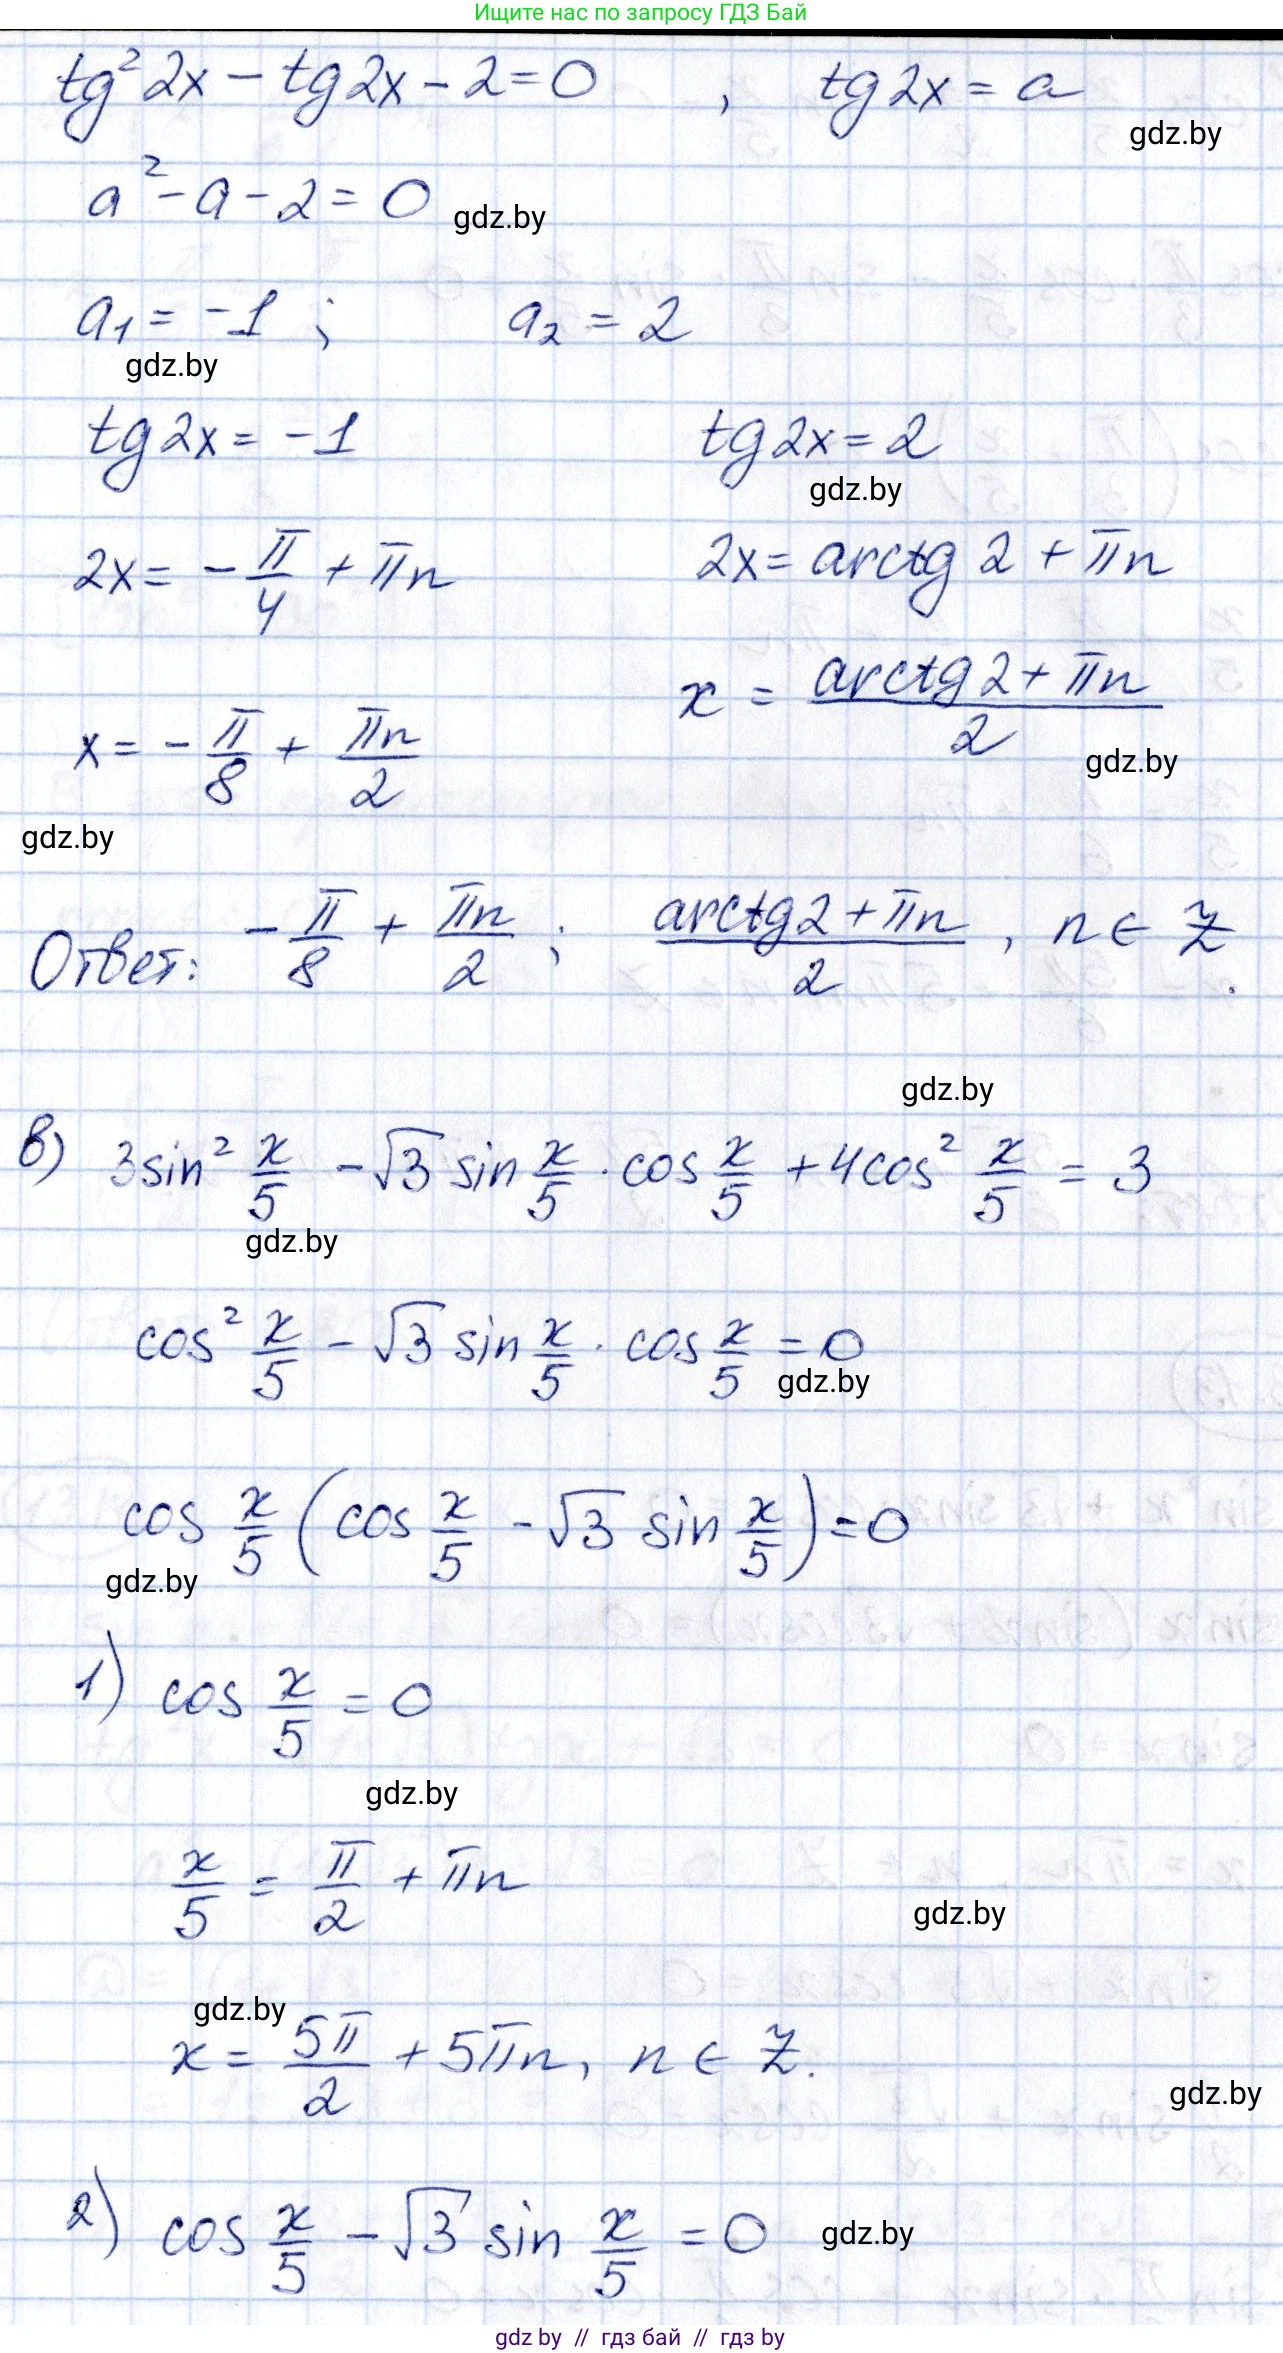 Ищите нас по запросу ГДЗ Бай
tg² 2x − tg 2x − 2 = 0 , tg 2x = a
gdz.by
a² − a − 2 = 0
gdz.by
a₁ = −1 ; a₂ = 2
gdz.by
tg 2x = −1 tg 2x = 2
gdz.by
2x = −π/4 + πn 2x = arctg 2 + πn
x = −π/8 + πn/2 x = (arctg 2 + πn)/2
gdz.by
gdz.by
Ответ: −π/8 + πn/2 ; (arctg 2 + πn)/2 , n ∈ Z.
gdz.by
в) 3sin² x/5 − √3 sin x/5 · cos x/5 + 4cos² x/5 = 3
gdz.by
cos² x/5 − √3 sin x/5 · cos x/5 = 0
gdz.by
cos x/5 (cos x/5 − √3 sin x/5) = 0
gdz.by
1) cos x/5 = 0
gdz.by
x/5 = π/2 + πn
gdz.by
gdz.by
x = 5π/2 + 5πn, n ∈ Z.
gdz.by
2) cos x/5 − √3 sin x/5 = 0
gdz.by
gdz by // гдз бай // гдз by